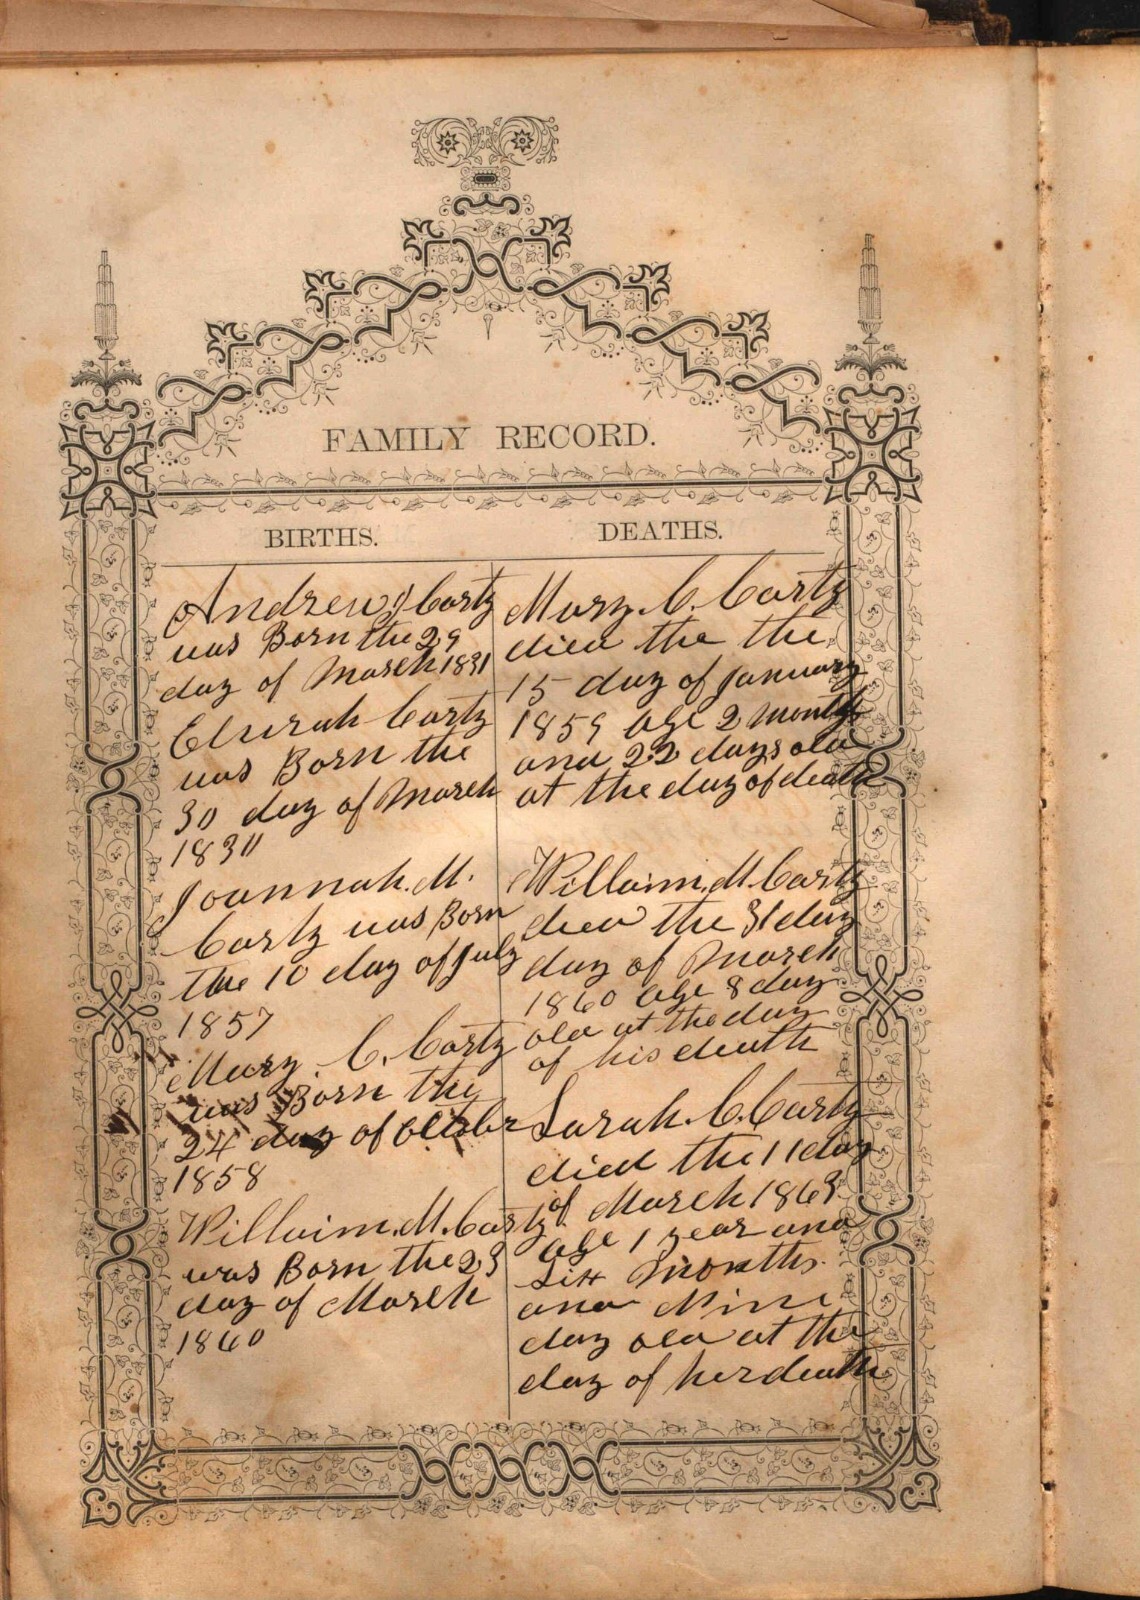 FAMILY RECORD.
BIRTHS.
Andrew J Cartz
was Born the 29
day of March 1831
Elsirah Cartz
was Born the
30 day of March
1830
Joannah. M.
Cartz was Born
the 10 day of July
1857
Mary. C. Cartz
was Born the
24 day of October
1858
Willaim. M. Cartz
was Born the 23
day of March
1860
DEATHS.
Mary. C. Cartz
died the the
15 day of January
1859 age 2 months
and 22 days old
at the day of death
Willaim. M. Cartz
died the 31 day
day of March
1860 age 8 day
old at the day
of his death
Sarah. C. Cartz
died the 11 day
of March 1863
age 1 year and
Six Months.
and Nine
day old at the
day of her death